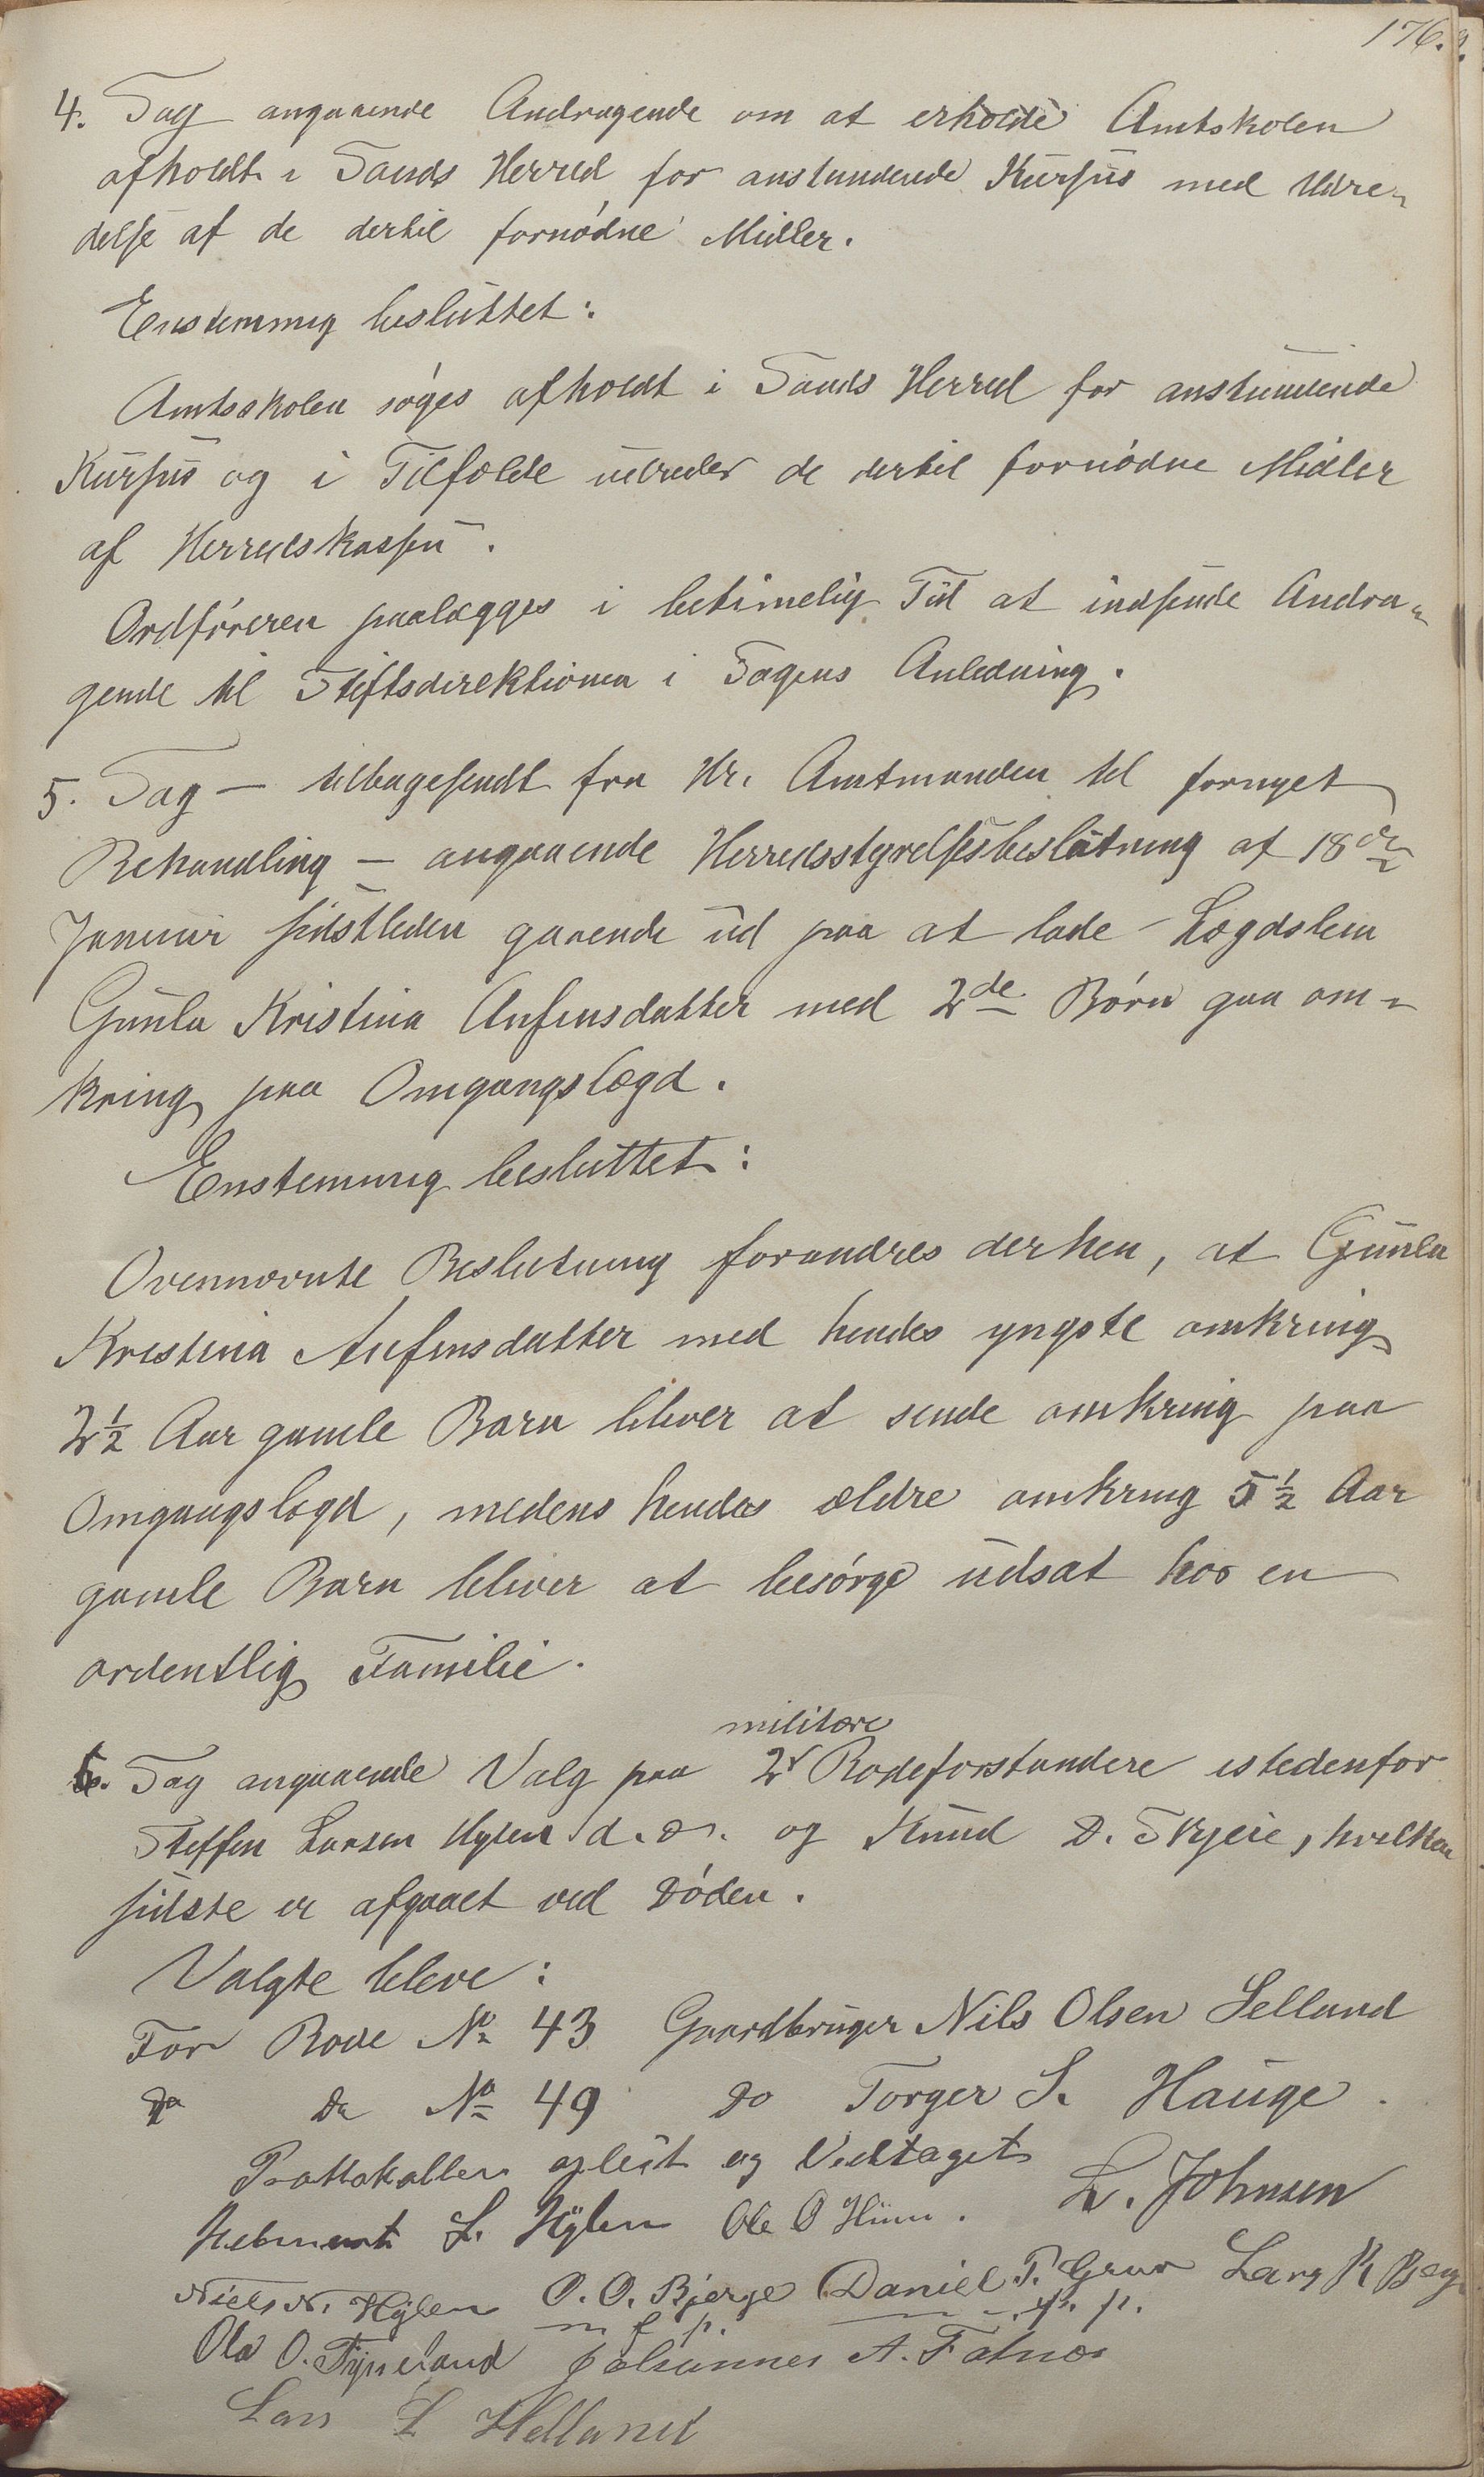 176.
4. Sag angaaende Andragende om at erholde Amtskolen
afholdt i Sands Herred for anstundende Kursus med Udre-
delse af de dertil fornødne Midler.
Enstemmig besluttet:
Amtsskolen søges afholdt i Sands Herred for anstundende
Kursus og i Tilfælde udreder de dertil fornødne Midler
af Herredskassen.
Ordføreren paalægges i betimelig Tid at indsende Andra-
gende til Stiftsdirektionen i Sagens Anledning.
5. Sag — tilbagesendt fra Hr. Amtmanden til fornyet
Behandling — angaaende Herredsstyrelsesbeslutning af 18de
Januar sidstleden gaaende ud paa at lade Lægdslem
Gunla Kristina Anfinsdatter med 2de Børn gaa om-
kring paa Omgangslægd.
Enstemmig besluttet:
Ovennævnte Beslutning forandres derhen, at Gunla
Kristina Anfinsdatter med hendes yngste omkring
2½ Aar gamle Barn bliver at sende omkring paa
Omgangslægd, medens hendes ældre omkring 5½ Aar
gamle Barn bliver at besørge udsat hos en
ordentlig Familie.
militære
6. Sag angaaende Valg paa 2 Rodeforstandere istedenfor
Steffen Larsen Hylen d. æ. og Knud D. Skjeie, hvilken
sidste er afgaaet ved Døden.
Valgte bleve:
For Rode No 43 Gaardbruger Nils Olsen Selland
Do Do No 49 Do Torger S. Hauge.
Prottokallen oplest og Vedtaget
L. Hylen Ole O Hiim. L. Johnsen
Niels N. Hylen O. O. Bjerge Daniel T. Grov Lars K Berge
m f p. m. f. p.
Ola O. Tjineland Johannes A. Fatnæs
Lars L Helland